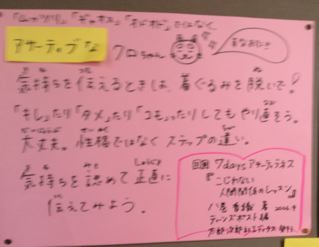 「ムッツリ」「ギャオス」「オドオド」ではなく
アサーティブな
クロちゃん
気持ちを伝えるときは、着ぐるみを脱いで!
「キレ」たり「ダメ」たり「コモ」ったりしてもやり直そう。
大丈夫。性格ではなくステップの違い。
気持ちを認めて正直に
伝えてみよう。
図書 7daysアサーティブネス
『こじれない
人間関係のレッスン』
八巻香織 著
ティーンズポスト 編